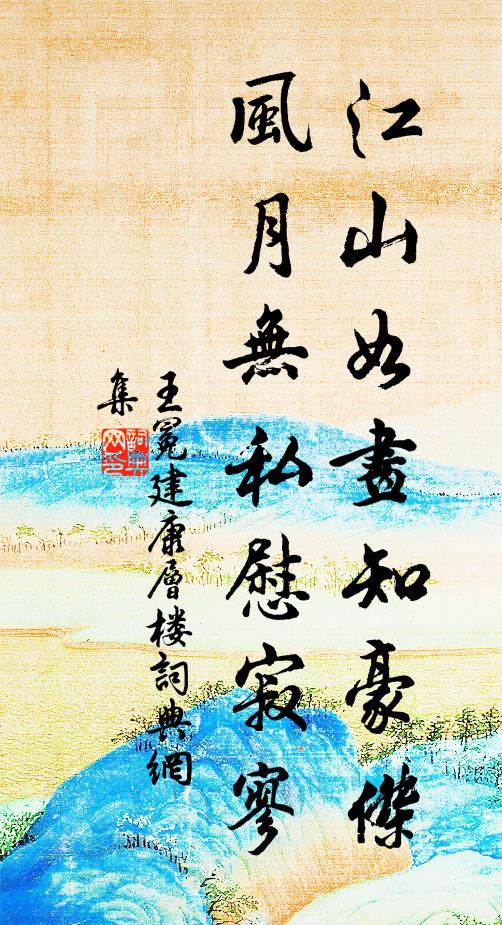 江山如畫知豪傑
風月無私慰寂寥
王冕建康層楼詞典網
集